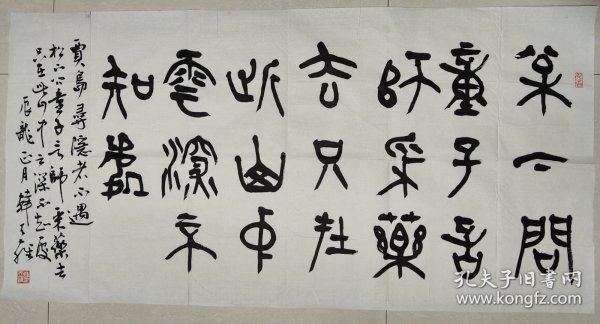 松下問
童子言
師采藥
去只在
此山中
雲深不
知處
賈島尋隱者不遇
松下问童子言師采藥去
只在此山中云深不知處
辰龍正月韓天
孔夫子旧书网
www.kongfz.com